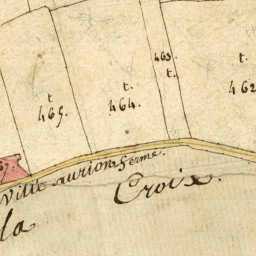 463.
t.
t.
465.
t.
464.
t.
462
67.
Ville aurion ferme.
Croix.
la